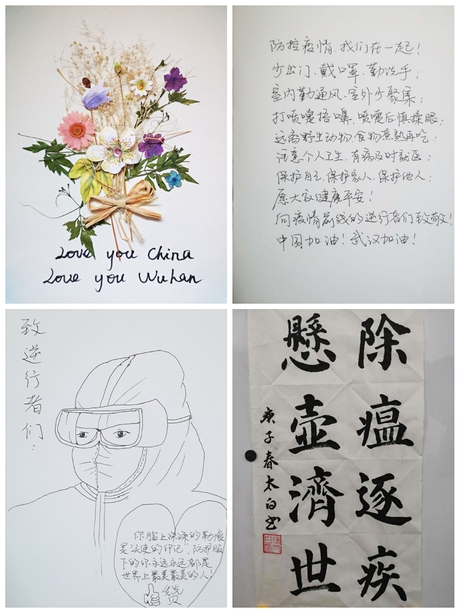 Love you China
Love you Wuhan
防控疫情 我们在一起!
少出门、戴口罩、勤洗手;
室内勤通风、室外少聚集;
打喷嚏捂嘴、喷嚏后慎揉眼;
远离野生动物 食物煮熟再吃;
注意个人卫生、有病及时就医;
保护自己、保护家人、保护他人;
愿大家健康平安!
向疫情前线的逆行者们致敬!
中国加油!武汉加油!
致逆行者们:
你脸上深深的勒痕
是淡速的印记,防护服
下的你永远永远都是
世界上最美最美的人!
赞
除瘟逐疾
悬壶濟世
庚子春太白书